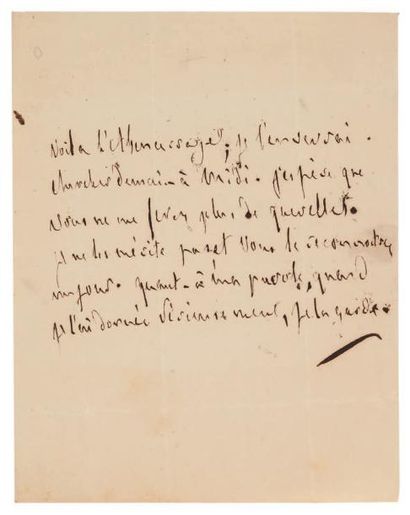 voila j'enverrai
chercher demain à midi. j'espère que
vous ne me ferez plus de querelles.
je ne les mérite pas et vous le reconnaitrez
un jour. quant à ma parole, quand
je l'ai donnée sérieusement, je la garde.